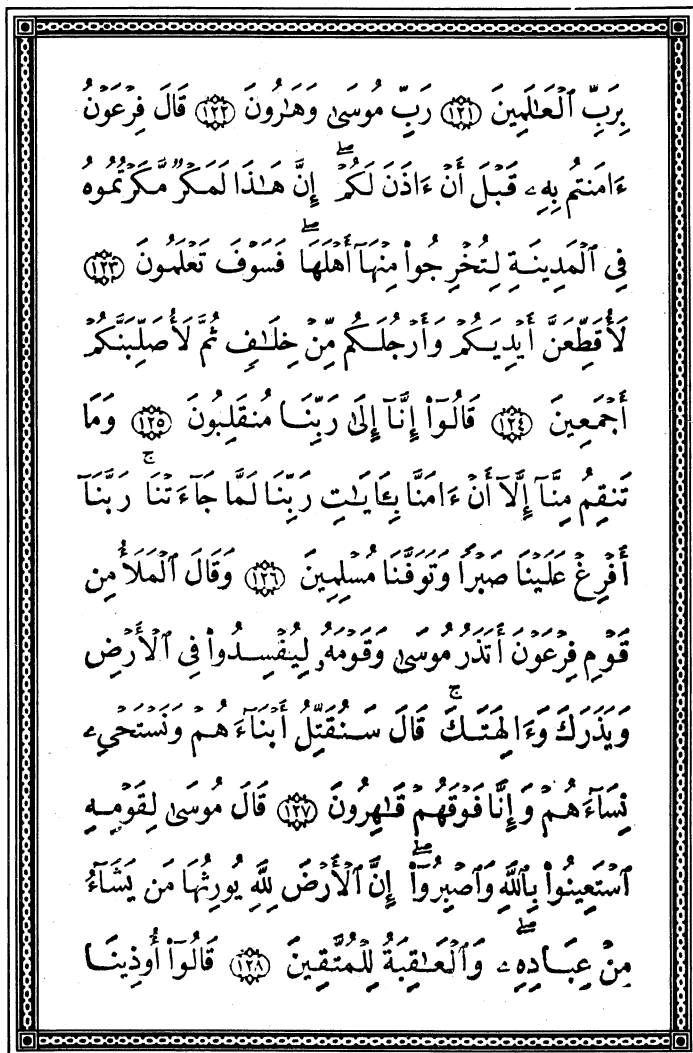 بِرَبِّ ٱلْعَـٰلَمِينَ ١٢١ رَبِّ مُوسَىٰ وَهَـٰرُونَ ١٢٢ قَالَ فِرْعَوْنُ
ءَامَنتُم بِهِۦ قَبْلَ أَنْ ءَاذَنَ لَكُمْ ۖ إِنَّ هَـٰذَا لَمَكْرٌ مَّكَرْتُمُوهُ
فِى ٱلْمَدِينَةِ لِتُخْرِجُوا۟ مِنْهَآ أَهْلَهَا ۖ فَسَوْفَ تَعْلَمُونَ ١٢٣
لَأُقَطِّعَنَّ أَيْدِيَكُمْ وَأَرْجُلَكُم مِّنْ خِلَـٰفٍ ثُمَّ لَأُصَلِّبَنَّكُمْ
أَجْمَعِينَ ١٢٤ قَالُوٓا۟ إِنَّآ إِلَىٰ رَبِّنَا مُنقَلِبُونَ ١٢٥ وَمَا
تَنقِمُ مِنَّآ إِلَّآ أَنْ ءَامَنَّا بِـَٔايَـٰتِ رَبِّنَا لَمَّا جَآءَتْنَا ۚ رَبَّنَآ
أَفْرِغْ عَلَيْنَا صَبْرًا وَتَوَفَّنَا مُسْلِمِينَ ١٢٦ وَقَالَ ٱلْمَلَأُ مِن
قَوْمِ فِرْعَوْنَ أَتَذَرُ مُوسَىٰ وَقَوْمَهُۥ لِيُفْسِدُوا۟ فِى ٱلْأَرْضِ
وَيَذَرَكَ وَءَالِهَتَكَ ۚ قَالَ سَنُقَتِّلُ أَبْنَآءَهُمْ وَنَسْتَحْىِۦ
نِسَآءَهُمْ وَإِنَّا فَوْقَهُمْ قَـٰهِرُونَ ١٢٧ قَالَ مُوسَىٰ لِقَوْمِهِ
ٱسْتَعِينُوا۟ بِٱللَّهِ وَٱصْبِرُوٓا۟ ۖ إِنَّ ٱلْأَرْضَ لِلَّهِ يُورِثُهَا مَن يَشَآءُ
مِنْ عِبَادِهِۦ ۖ وَٱلْعَـٰقِبَةُ لِلْمُتَّقِينَ ١٢٨ قَالُوٓا۟ أُوذِينَا